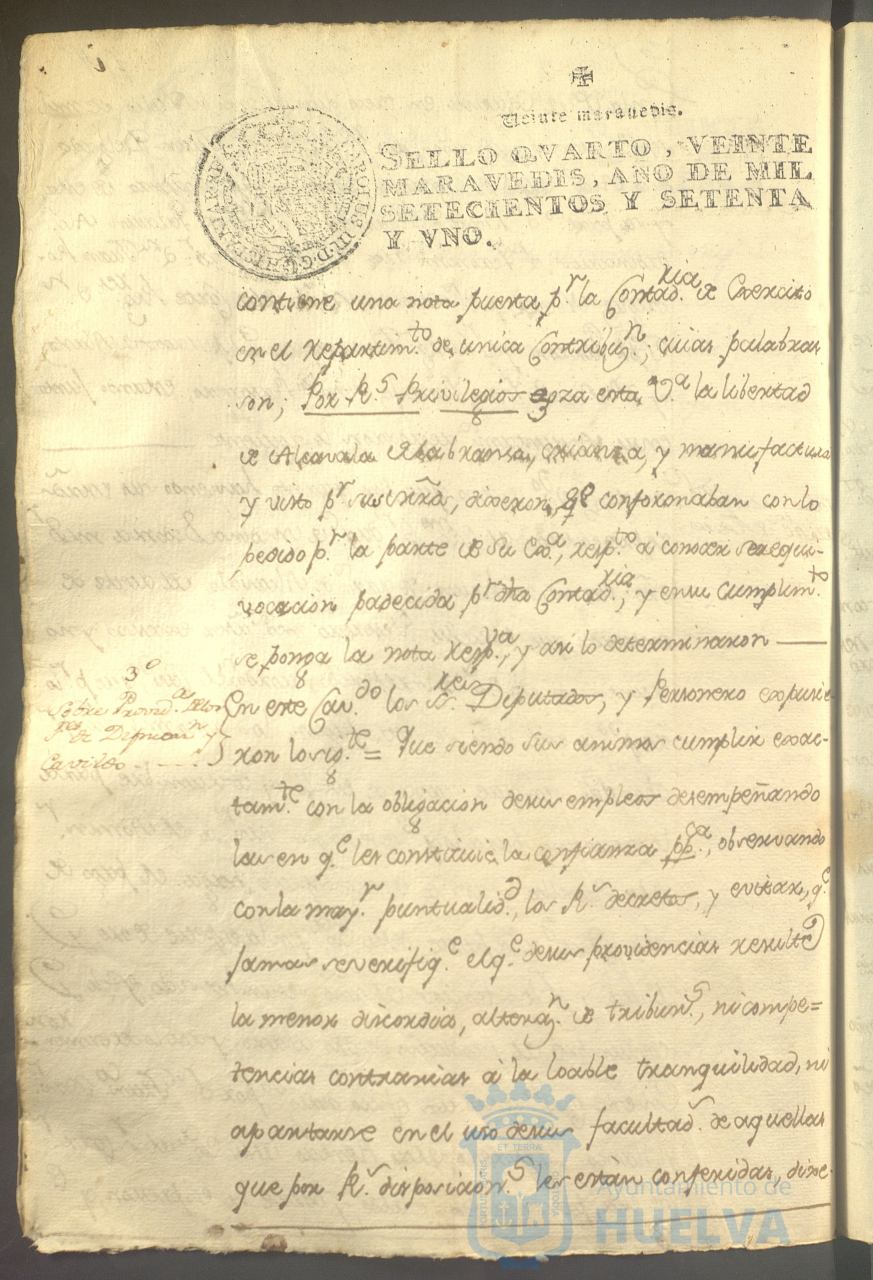 Veinte maravedis.
SELLO QVARTO, VEINTE
MARAVEDIS, AÑO DE MIL
SETECIENTOS Y SETENTA
Y VNO.
CAROLUS III D. G. HISPANIAR REX
contiene una nota puesta p.r la Contad.ria de Exercito
en el repartim.to de unica Contribuz.n; cuias palabras
son; Por R.s Privilegios goza esta V.a la libertad
de Alcavala de labranza, crianza, y manifactura
y visto p.r sus mrd, dixeron, q.e conformaban con lo
pedido p.r la parte de Su Exa, resp.to a conocer ser equi-
vocacion padecida p.r dha Contad.ria; y en su cumplim.to
se ponga la nota resp.va, y asi lo determinaron —
3º
Sobre Provid.as
de Diputaz.n y
Cavildo
En este Cav.do los S.res Diputados, y Personero expusie
ron lo sig.te = Que siendo sus animos cumplir exac-
tam.te con la obligacion de sus empleos desempeñando
las en q.e les constituie la confianza pp.ca, observando
con la may.r puntualid.d, los R.s decretos, y evitar, q.e
jamas se verifiq.e el q.e de sus providencias resulte
la menor discordia, alteraz.n de tribun.s, ni compe=
tencias contrarias á la loable tranquilidad, ni
apartarse en el uso de sus facultad.s de aquellas
que por R.s disposicion.s les están conferidas, dixe-
Ayuntamiento de
HUELVA